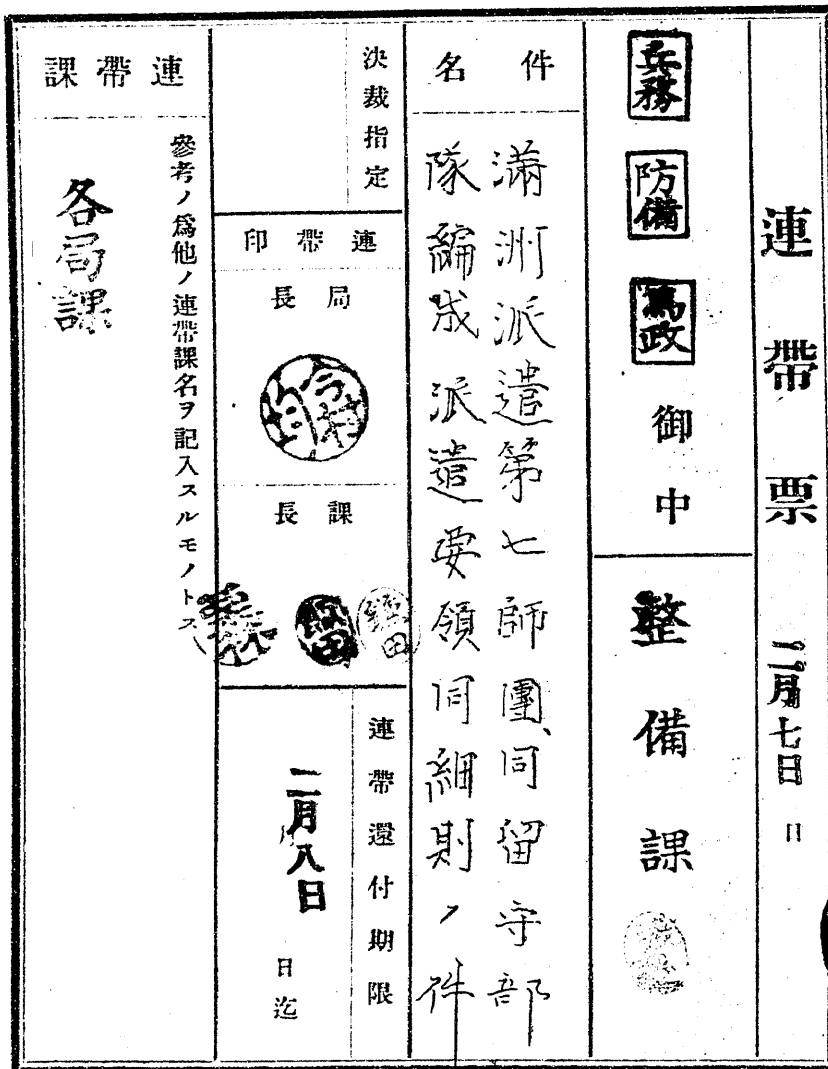 連帶票
二月七日
日
兵務
防備
馬政
御中
整備課
件名
滿洲派遣第七師團、同留守部
隊編成派遣要領同細則ノ件
決裁指定
連帶印
局長
今村
課長
連帶還付期限
二月八日
月
日迄
連帶課
參考ノ爲他ノ連帶課名ヲ記入スルモノトス
各局課